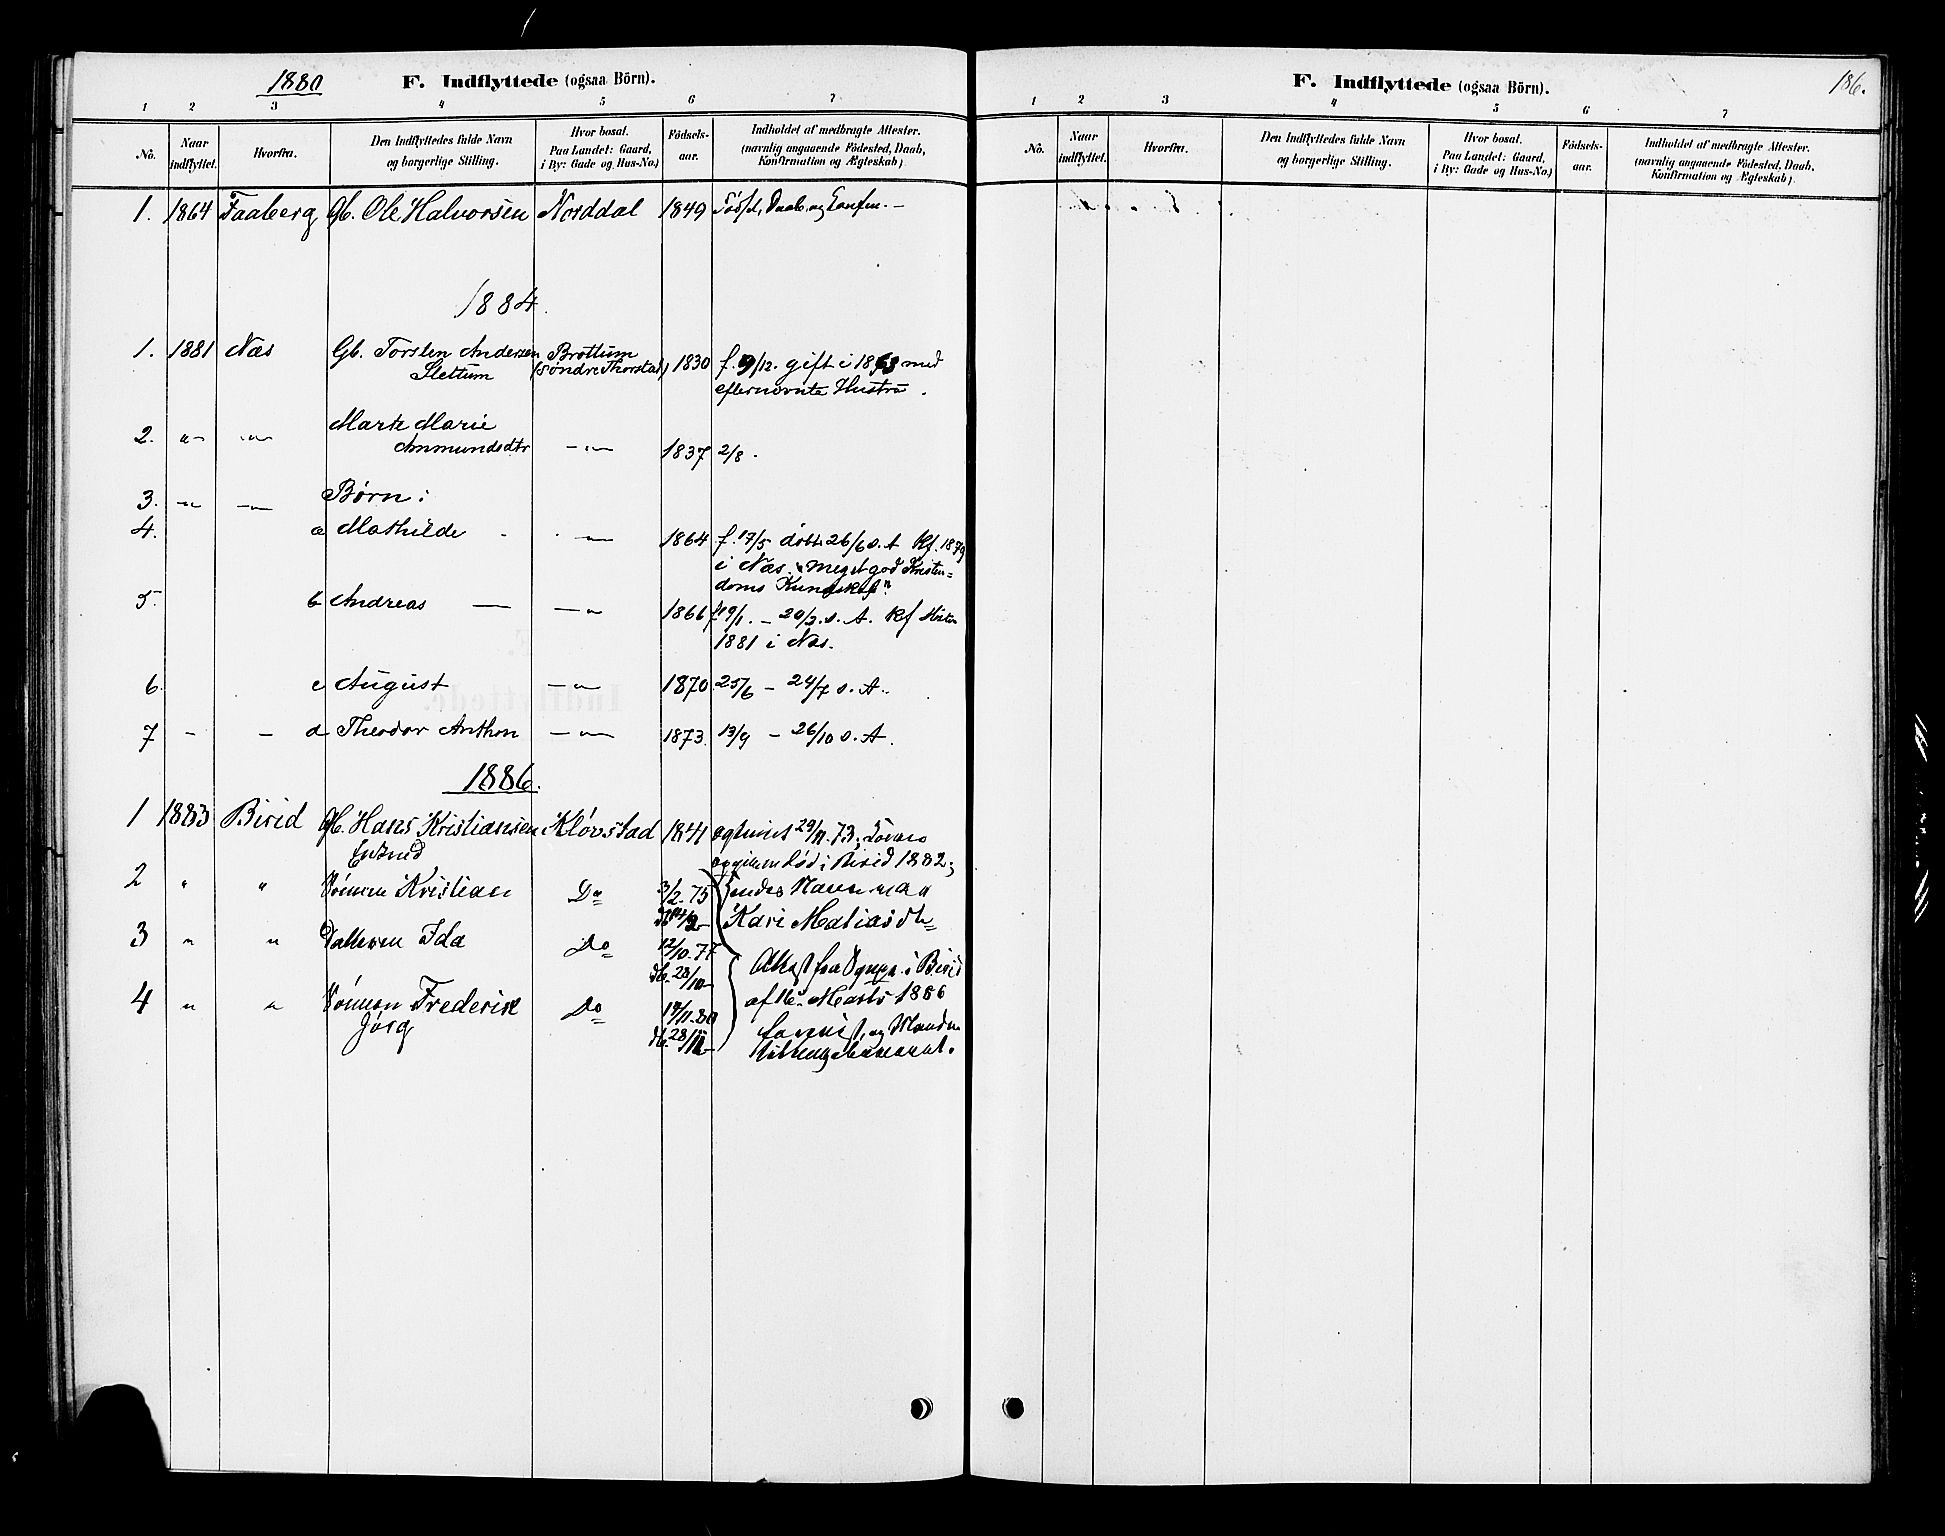 1880 F. Indflyttede (ogsaa Börn).
1 2 3 4 5 6 7
No. Naar indflyttet. Hvorfra. Den Indflyttedes fulde Navn og borgerlige Stilling. Hvor bosat. Paa Landet: Gaard, i By: Gade og Hus-No.) Födsels-aar. Indholdet af medbragte Attester. (navnlig angaaende Födested, Daab, Konfirmation og Ægteskab)
1. 1864 Faaberg Gb. Ole Halvorsen Norddal 1849 Daab. og Confm. —
1884.
1. 1881 Næs Gb. Torsten Andersen Brøttum 1830 f. 9/12. gift i 1863 med
Slettum (Søndre Thorstad) efternævnte Hustru.
2. Marte Marie
Ammundsdtr 1837 2/8.
3. Børn:
4. a Mathilde 1864 f. 17/5 døbt 26/6 s. A. Kf. 1879
i Næs. "meget god Kristen=
doms Kundskab"
5. b Andreas — 1866 f. 19/1. — 20/3. s. A. Kf Høsten
1881 i Næs.
6. c August 1870 25/6 — 24/7 s. A.
7 - - d Theodor Anthon 1873. 13/9 — 26/10 s. A.
1886.
1 1883 Birid Gb. Hans Kristiansen Kløvstad 1841 29/11. 73;
død i Birid 1882;
2 " " Sønnen Kristian Do 3/2. 75 Navn var
Kari Matiasdtr
3 " " Datteren Ida Do 12/10. 77
db. 28/10 Attest fra i Birid
4 " " Sønnen Frederik Do 80 af Marts 1886
Jørg db. 28/11 og
F. Indflyttede (ogsaa Börn). 186.
1 2 3 4 5 6 7
No. Naar indflyttet. Hvorfra. Den Indflyttedes fulde Navn og borgerlige Stilling. Hvor bosat. Paa Landet: Gaard, i By: Gade og Hus-No.) Födsels-aar. Indholdet af medbragte Attester. (navnlig angaaende Födested, Daab, Konfirmation og Ægteskab)